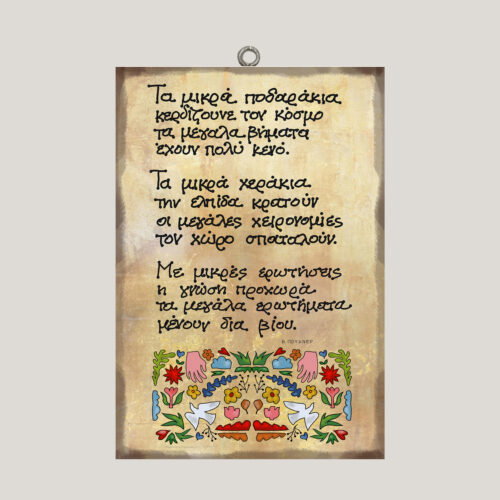 Τα μικρά ποδαράκια
κερδίζουνε τον κόσμο
τα μεγάλα βήματα
έχουν πολύ κενό.
Τα μικρά χεράκια
την ελπίδα κρατούν
οι μεγάλες χειρονομίες
τον χώρο σπαταλούν.
Με μικρές ερωτήσεις
η γνώση προχωρά
τα μεγάλα ερωτήματα
μένουν δια βίου.
Β. ΠΟΥΧΝΕΡ